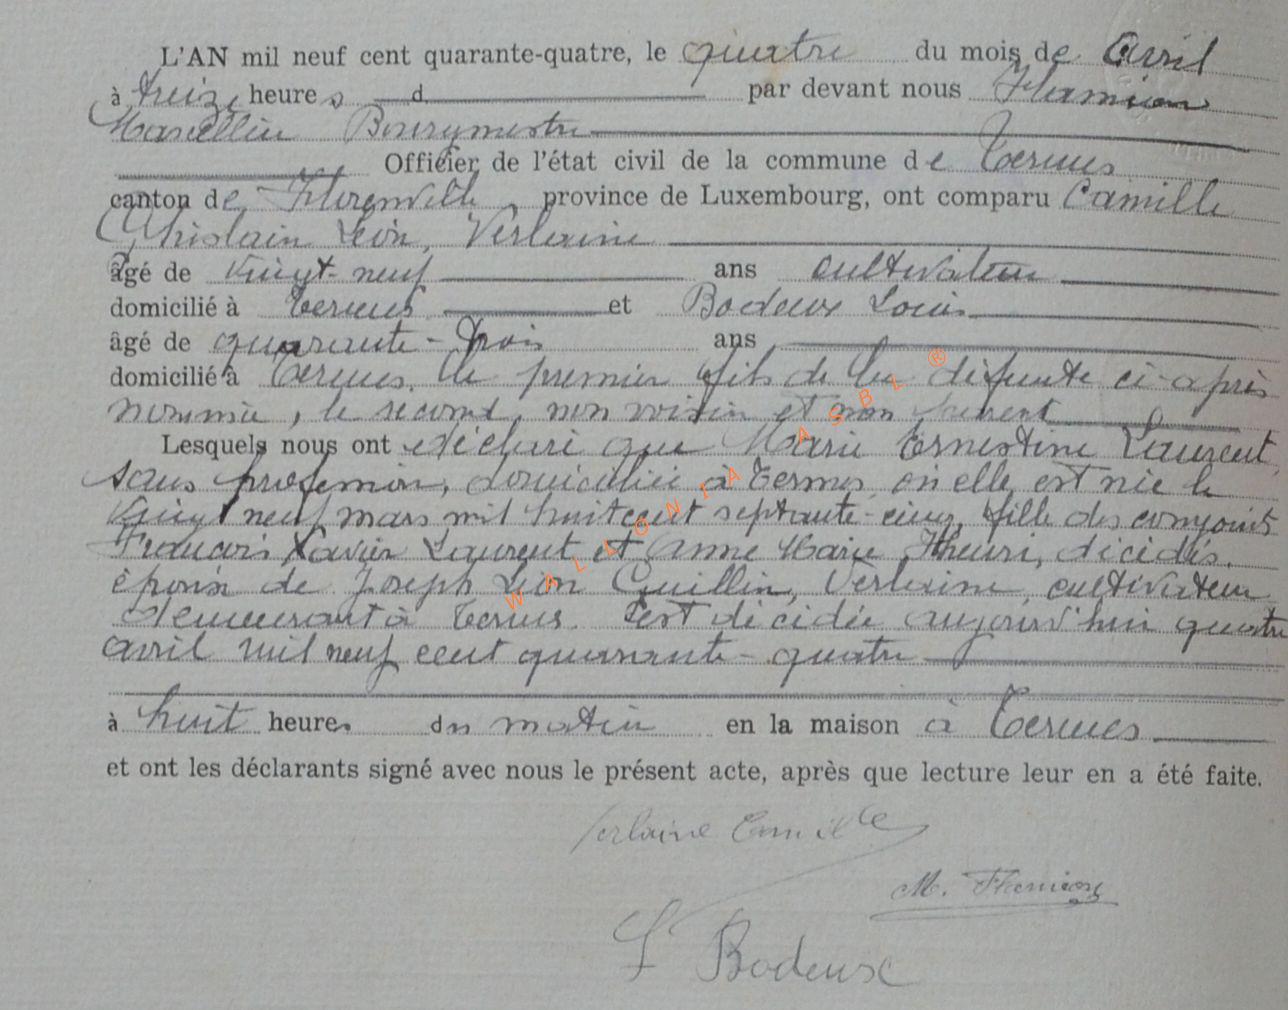 L'AN mil neuf cent quarante-quatre, le quatre du mois de Avril
à treize heures d par devant nous Flamion
Marcellin Bourgmestre
Officier de l'état civil de la commune de Termes
canton de Florenville, province de Luxembourg, ont comparu Camille
Ghislain Léon, Verlaine
âgé de vingt-neuf ans cultivateur
domicilié à Termes et Bodeux Louis
âgé de quarante-trois ans
domicilié à Termes. Le premier fils de la défunte ci-après
nommée, le second, non voisin et non parent
Lesquels nous ont déclaré que Marie Ernestine Laurent,
sans profession, domiciliée à Termes où elle est née le
vingt neuf mars mil huit cent septante-cinq, fille des conjoints
François Xavier Laurent et Anne Marie Henri, décédés.
épouse de Joseph Léon Guillin, Verlaine, cultivateur
demeurant à Termes. est décédée aujourd'hui quatre
avril mil neuf cent quarante-quatre
à huit heures du matin en la maison à Termes
et ont les déclarants signé avec nous le présent acte, après que lecture leur en a été faite.
Verlaine Camille
M. Flamion
L Bodeux
WALLONIA ASBL ®